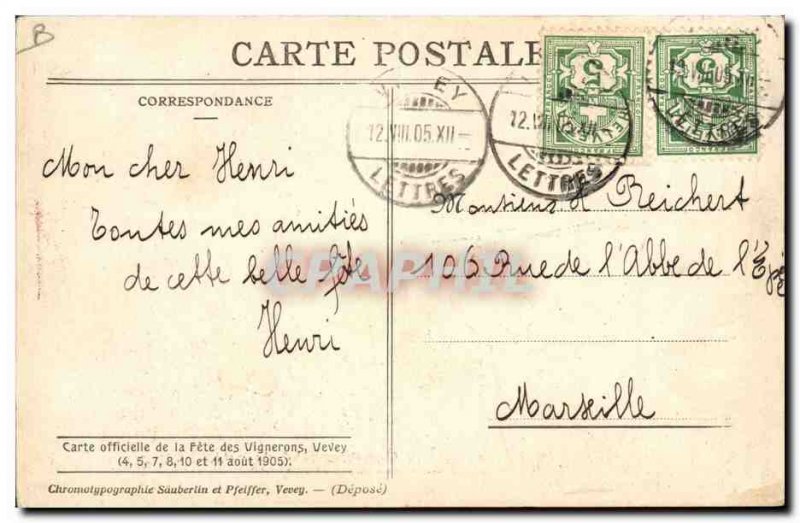 B
CARTE POSTALE
CORRESPONDANCE
VEVEY
12.VIII.05.XII-
LETTRES
12.VIII.05.XII-
LETTRES
5
HELVETIA
5
12.VIII.05.XII-
LETTRES
Mon cher Henri
Toutes mes amitiés
de cette belle fête
Henri
Monsieur H Reichert
106 Rue de l'Abbe de l'Epé
Marseille
EPAPHIL
Carte officielle de la Fête des Vignerons, Vevey
(4, 5, 7, 8, 10 et 11 août 1905).
Chromotypographie Säuberlin et Pfeiffer, Vevey. — (Déposé)